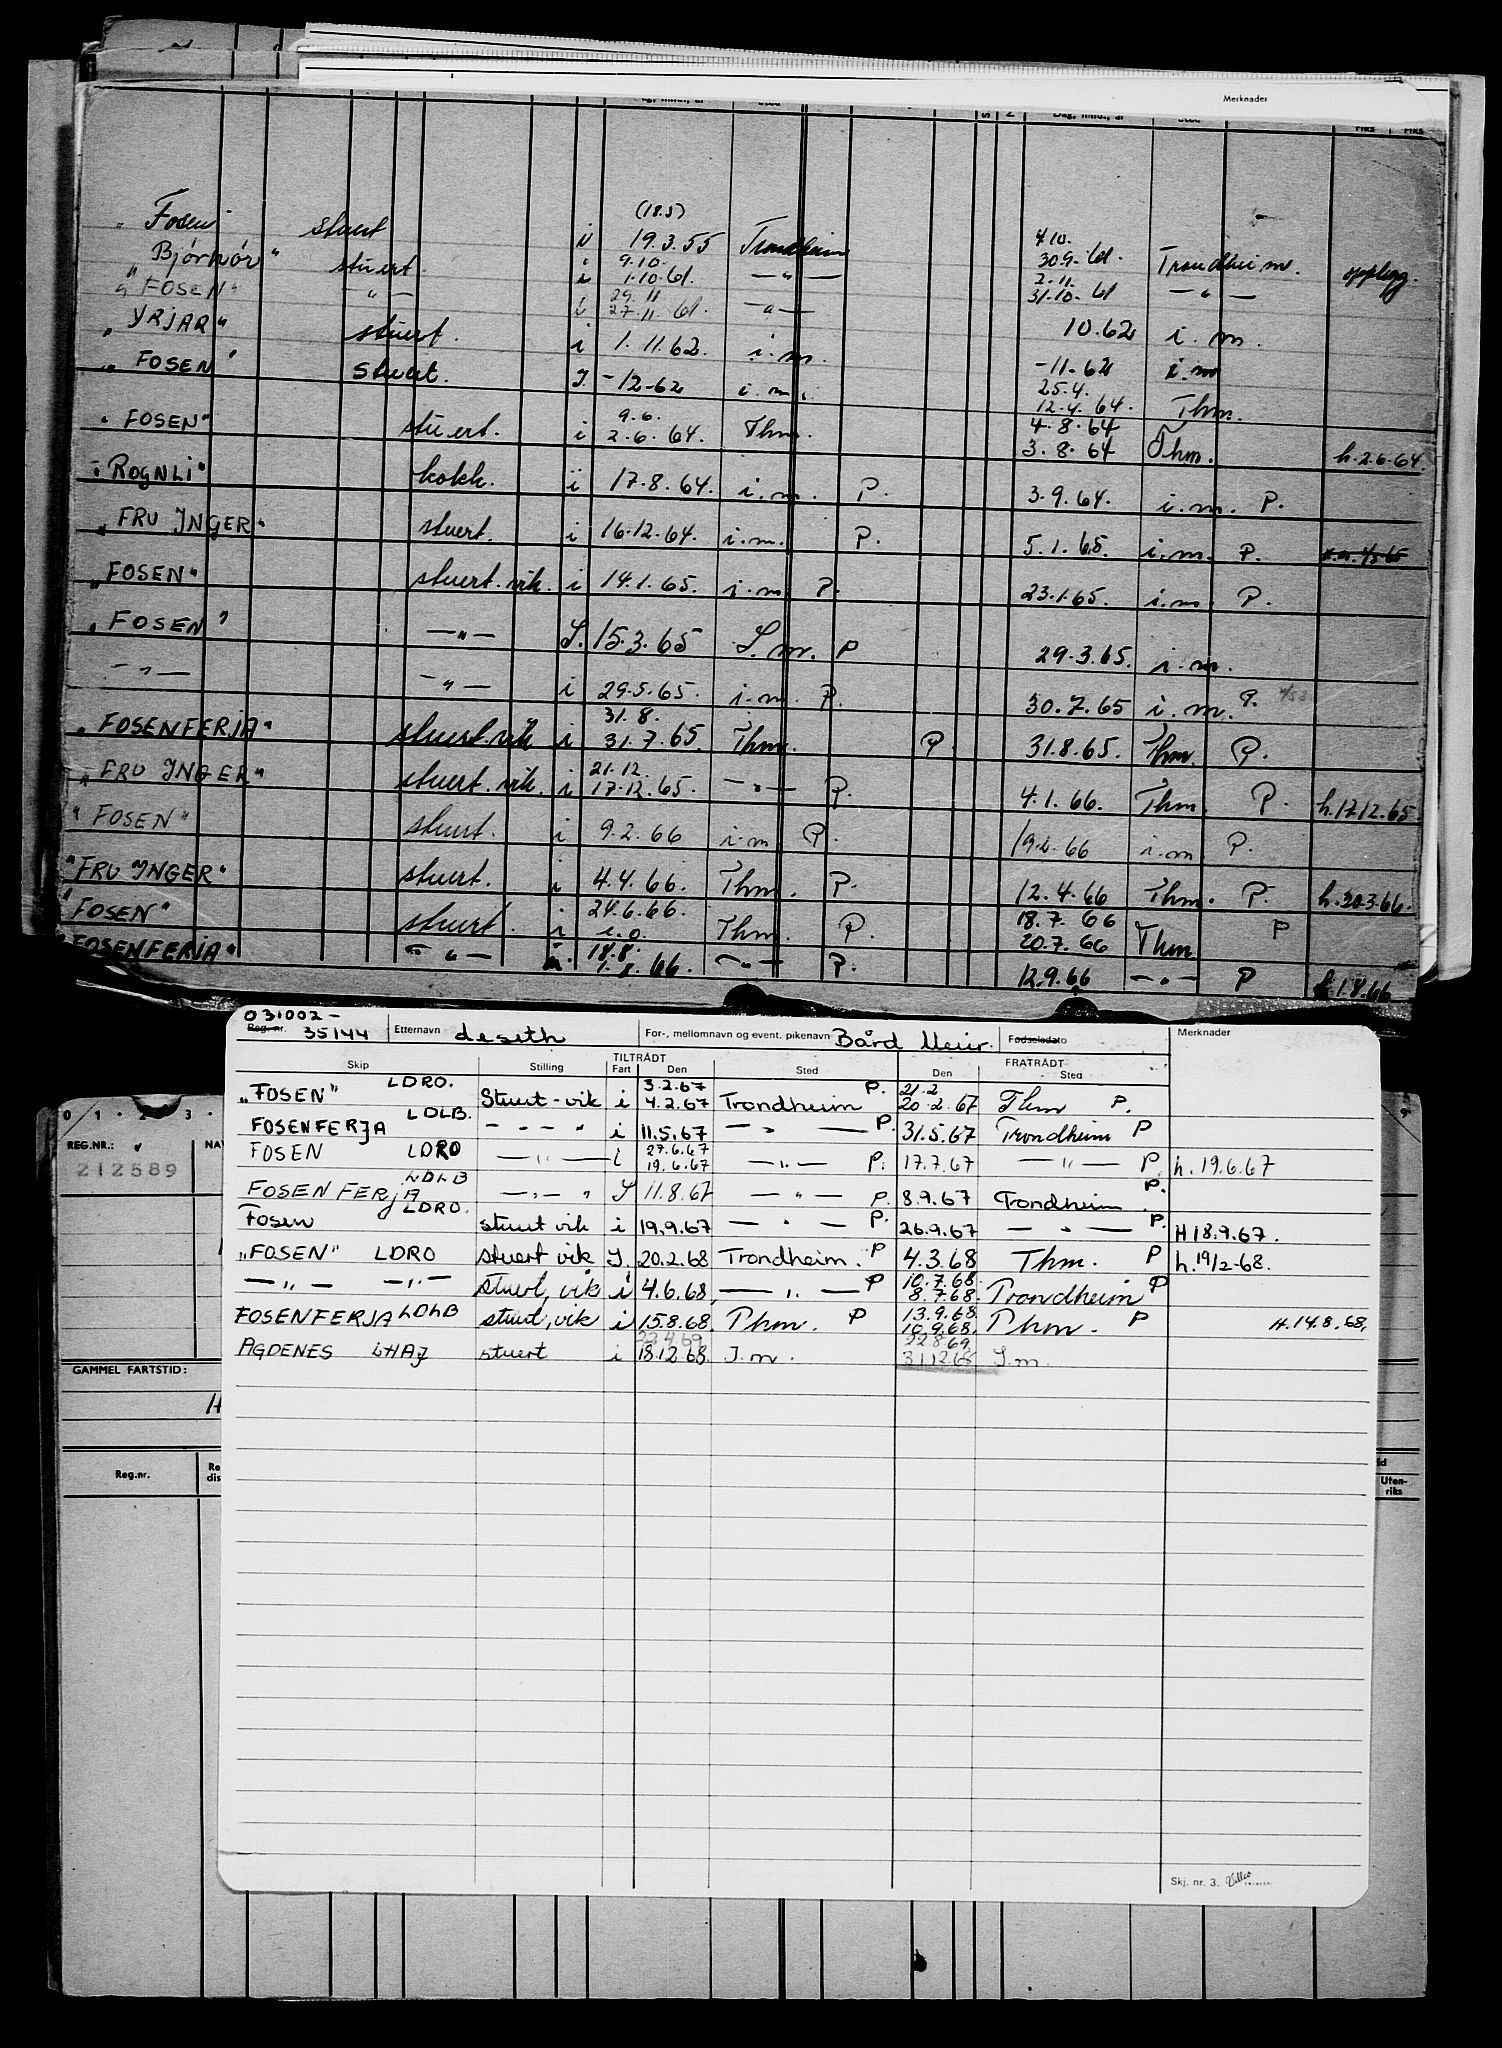 Merknader
(18.5)
4.10.
„Fosen" stuert i 19.3.55 Trondheim 30.9.61. Trondheim. opplegg.
9.10. 2.11.
„Bjørnør" stuert. i 1.10.61. —"— 31.10.61 —"—
29.11
„FOSEN" —"— i 27.11.61. —"— 10.62 i.m.
„YRJAR" stuert. i 1.11.62. i.m. -11.62 i.m
25.4.
„FOSEN" Stuert. I -12-62 i.m. 12.4.64. Thm.
9.6. 4.8.64
„FOSEN" stuert. i 2.6.64. Thm. 3.8.64 Thm. h.2.6.64.
„ROGNLI" kokk. i 17.8.64. i.m. P. 3.9.64. i.m. P.
„FRU INGER" stuert. i 16.12.64. i.m. P. 5.1.65. i.m. P.
„FOSEN" stuert.vik. i 14.1.65. i.m. P. 23.1.65. i.m. P.
„FOSEN" —"— I. 15.3.65 I.m. P 29.3.65. i.m.
—"— —"— i 29.5.65. i.m. P. 30.7.65 i.m. P.
31.8.
„FOSENFERJA" stuert.vik i 31.7.65. Thm. P. 31.8.65. Thm. P.
21.12.
„FRU INGER" stuert.vik. i 17.12.65. —"— P. 4.1.66. Thm. P. h.17.12.65.
"FOSEN" stuert. i 9.2.66 i.m P. 19.2.66 i.m P.
"FRU INGER" stuert. i 4.4.66. Thm. P. 12.4.66 Thm. P. h.20.3.66.
24.6.66. 18.7.66
"FOSEN" stuert. i i.o. Thm. P. 20.7.66 Thm P
18.8.
"FOSENFERJA" —"— i. 1.8.66. —"— P. 12.9.66 —"— P h.1.8.66
031002-
Reg. nr. 35144 Etternavn deseth For-, mellomnavn og event. pikenavn Bård Meier. Fødselsdato Merknader
TILTRÅDT FRATRÅDT
Skip Stilling Fart Den Sted Den Sted
3.2.67 21.2
„FOSEN" LDRO. Stuert-vik i 4.2.67 Trondheim P. 20.2.67 Thm P.
FOSENFERJA LDLB. — " — " i 11.5.67 —"— P. 31.5.67 Trondheim P
27.6.67
FOSEN LDRO —"— i 19.6.67 —"— P. 17.7.67 —"— P. h. 19.6.67
FOSENFERJA LDLB —"— " I 11.8.67 —"— P. 8.9.67 Trondheim P.
Fosen LDRO. stuert vik i 19.9.67 —"— P. 26.9.67 —"— P. H 18.9.67.
„FOSEN" LDRO stuert vik I. 20.2.68 Trondheim. P 4.3.68 Thm. P h.19/2-68.
10.7.68.
—"— —"— stuert, vik i 4.6.68, —"— P 8.7.68 Trondheim P
13.9.68.
FOSENFERJA LDLB stuert, vik i 15.8.68. Thm. P 10.9.68. Thm. P H.14.8.68.
22.4.69 22.8.69.
AGDENES LHAJ stuert i 18.12.68. I.m. 31.12.68 I.m.
Skj. nr. 3.
0 1 2 3
REG.NR.:
212589
GAMMEL FARTSTID:
Reg.nr.
Uten-
riks